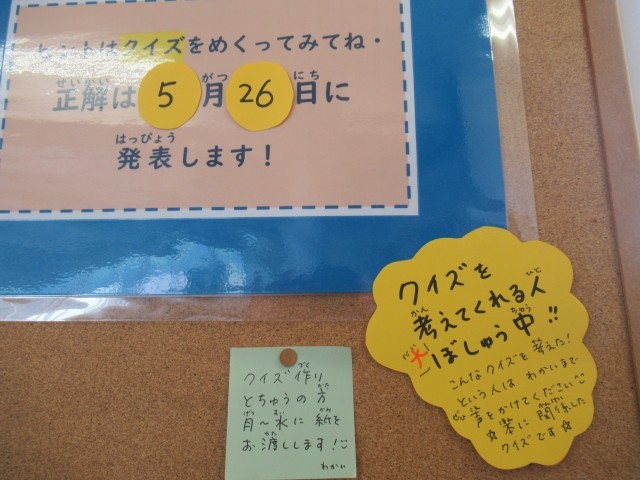 ヒントはクイズをめくってみてね・
せいかい がつ にち
正解は5月26日に
はっぴょう
発表します!
クイズを
かん ひと
考えてくれる人
だい ちゅう
大ぼしゅう中!!
こんなクイズを考えた!
という人は わかいまで
声をかけてください
☆薬に関係した
クイズです☆
づく
クイズ作り
かた
とちゅうの方
げつ すい かみ
月~水に紙を
わた
お渡しします!
わかい